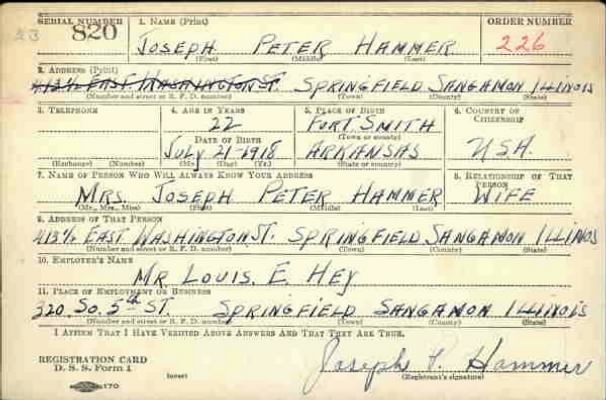 SERIAL NUMBER 1. NAME (Print) ORDER NUMBER
820 JOSEPH PETER HAMMER 226
(First) (Middle) (Last)
2. ADDRESS (Print)
413½ EAST WASHINGTON ST. SPRINGFIELD SANGAMON ILLINOIS
(Number and street or R. F. D. number) (Town) (County) (State)
3. TELEPHONE 4. AGE IN YEARS 5. PLACE OF BIRTH 6. COUNTRY OF CITIZENSHIP
22 FORT SMITH
DATE OF BIRTH (Town or county)
JULY 21-1918 ARKANSAS U.S.A.
(Exchange) (Number) (Mo.) (Day) (Yr.) (State or country)
7. NAME OF PERSON WHO WILL ALWAYS KNOW YOUR ADDRESS 8. RELATIONSHIP OF THAT PERSON
MRS. JOSEPH PETER HAMMER WIFE
(Mr., Mrs., Miss) (First) (Middle) (Last)
9. ADDRESS OF THAT PERSON
413½ EAST WASHINGTON ST. SPRINGFIELD SANGAMON ILLINOIS
(Number and street or R. F. D. number) (Town) (County) (State)
10. EMPLOYER'S NAME
MR. LOUIS. E. HEY
11. PLACE OF EMPLOYMENT OR BUSINESS
320 SO. 5th ST. SPRINGFIELD SANGAMON ILLINOIS
(Number and street or R. F. D. number) (Town) (County) (State)
I AFFIRM THAT I HAVE VERIFIED ABOVE ANSWERS AND THAT THEY ARE TRUE.
REGISTRATION CARD
D. S. S. Form 1 Joseph P. Hammer
(over) (Registrant's signature)